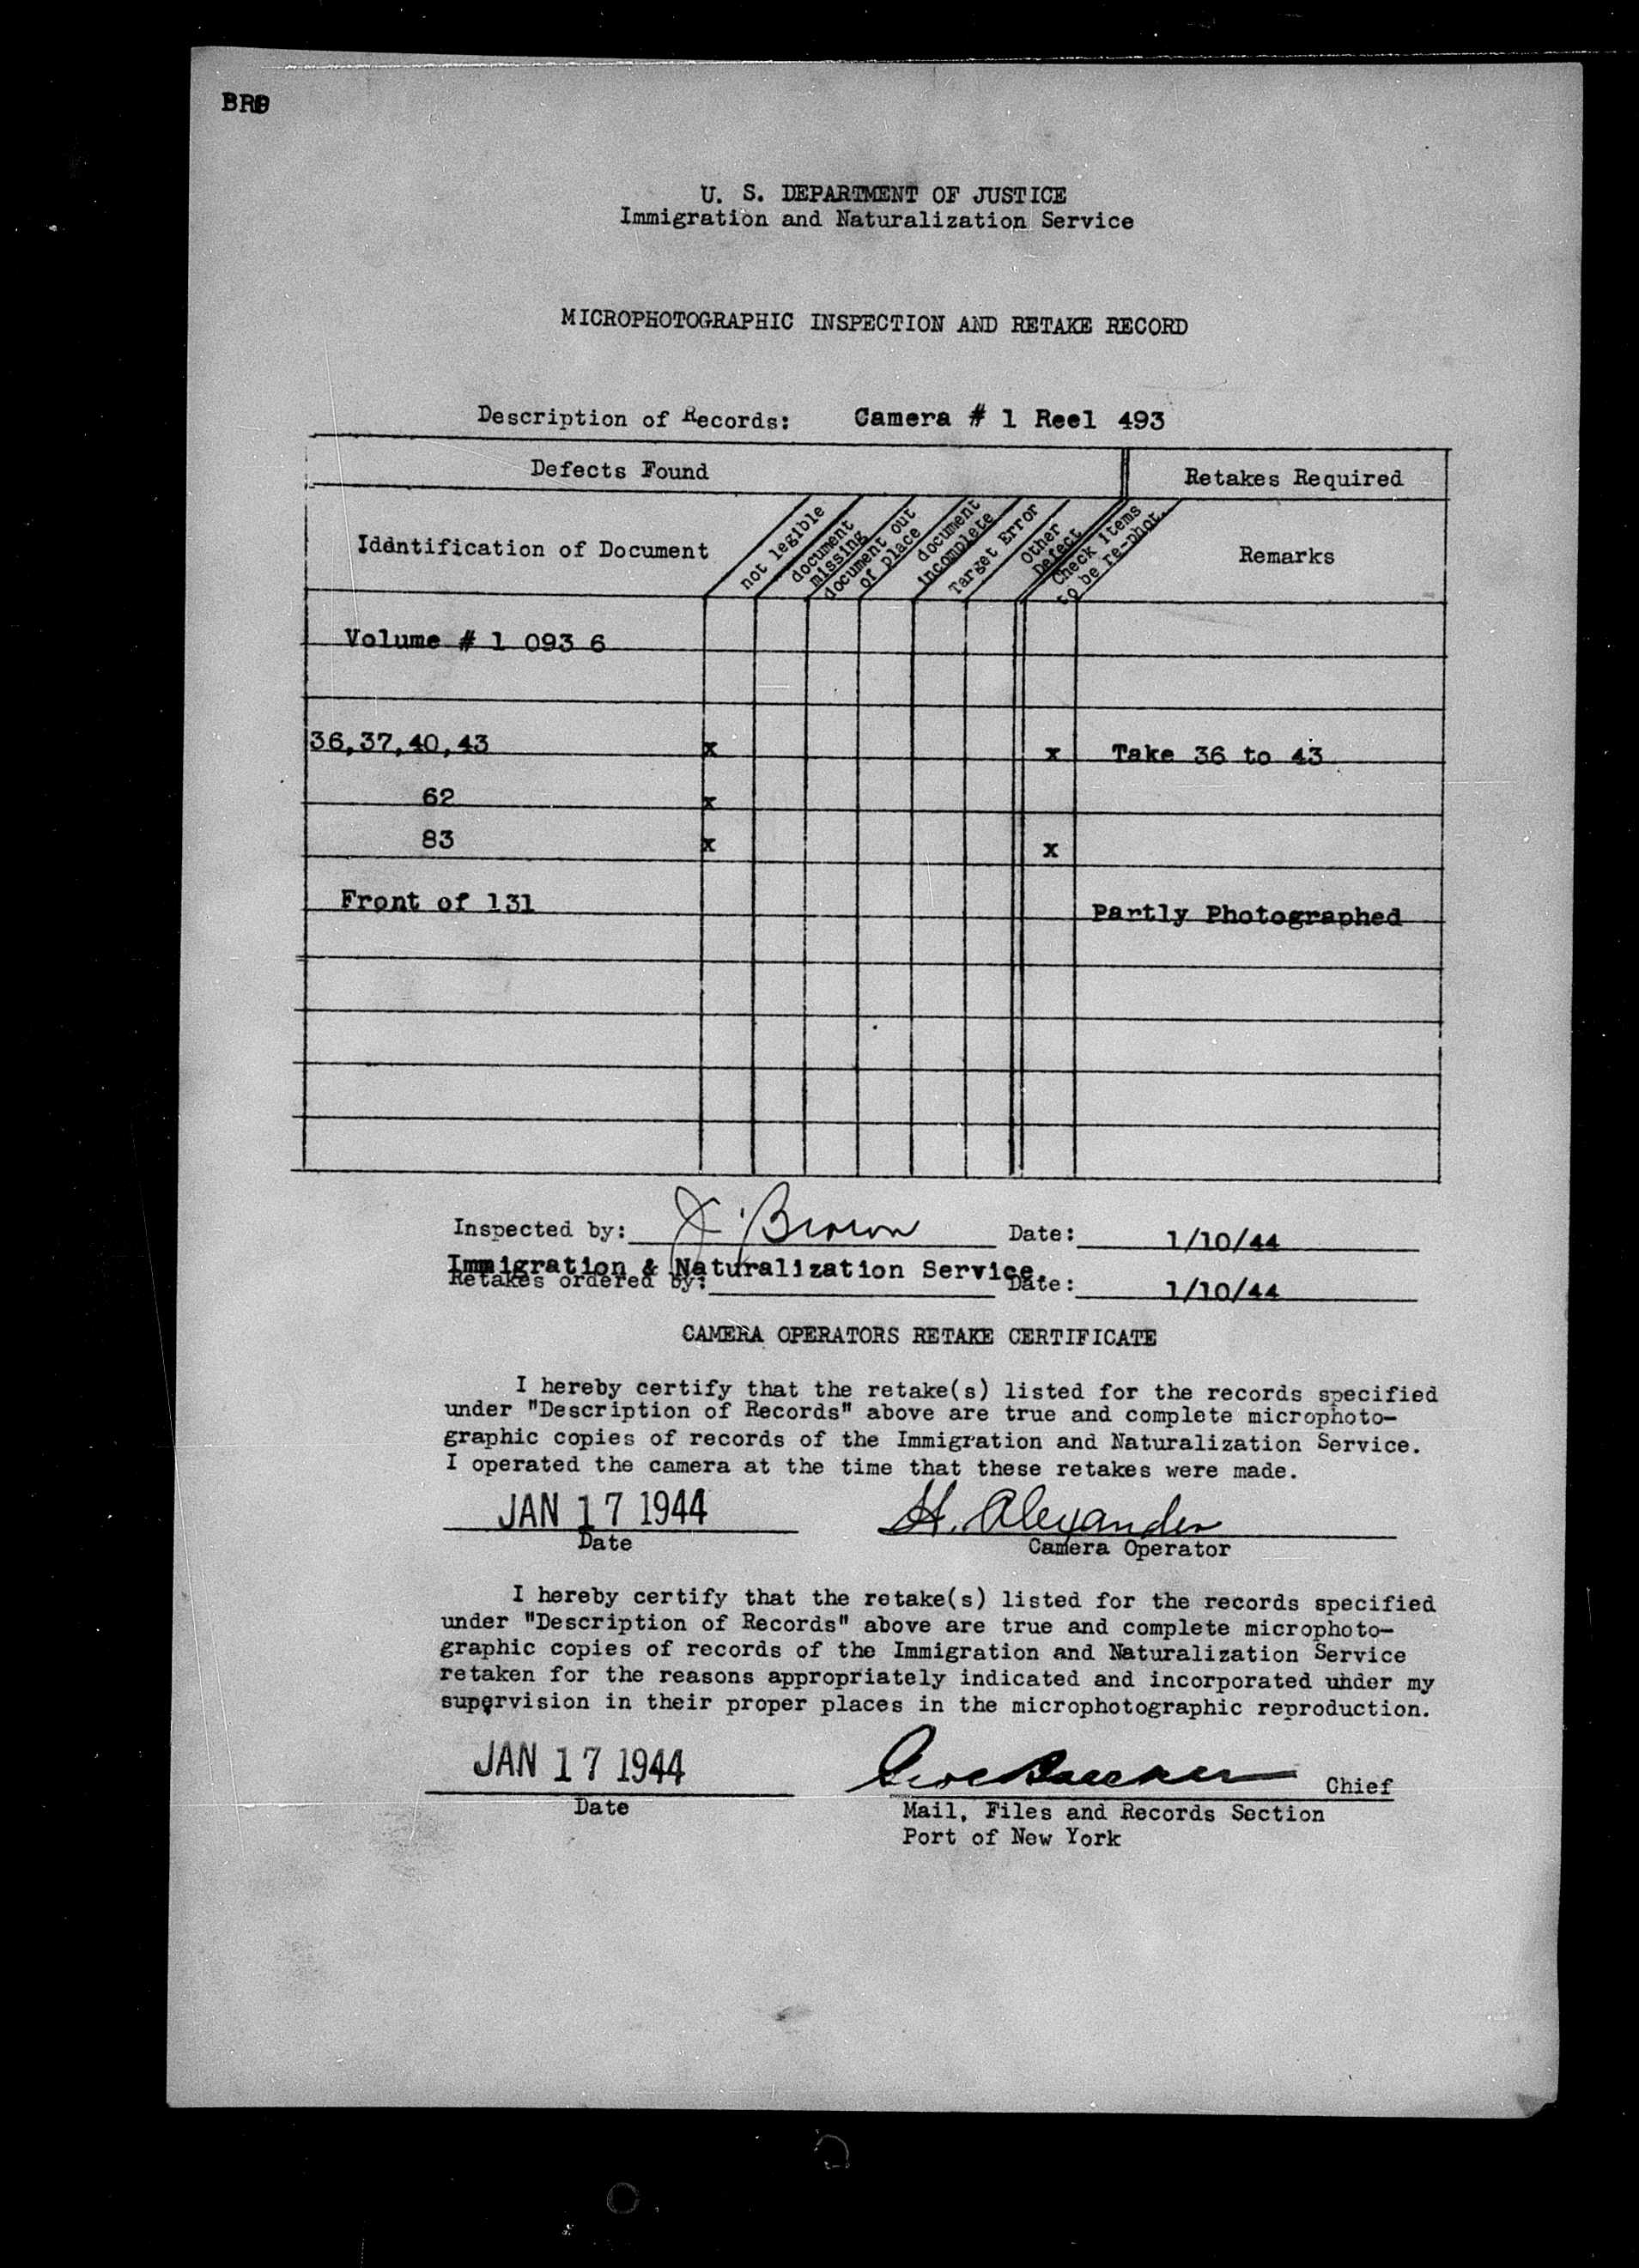 BRB
U. S. DEPARTMENT OF JUSTICE
Immigration and Naturalization Service
MICROPHOTOGRAPHIC INSPECTION AND RETAKE RECORD
Description of Records: Camera # 1 Reel 493
Defects Found
Retakes Required
Iddntification of Document
not legible
document missing
document out of place
document incomplete
Target Error
Other Defect
Check items to be re-phot.
Remarks
Volume # 1 093 6
36,37,40,43 x x Take 36 to 43
62 x
83 x x
Front of 131 Partly Photographed
Inspected by: J. Brown Date: 1/10/44
Immigration & Naturalization Service.
Retakes ordered by: Date: 1/10/44
CAMERA OPERATORS RETAKE CERTIFICATE
I hereby certify that the retake(s) listed for the records specified
under "Description of Records" above are true and complete microphoto-
graphic copies of records of the Immigration and Naturalization Service.
I operated the camera at the time that these retakes were made.
JAN 17 1944 H. Alexander
Date Camera Operator
I hereby certify that the retake(s) listed for the records specified
under "Description of Records" above are true and complete microphoto-
graphic copies of records of the Immigration and Naturalization Service
retaken for the reasons appropriately indicated and incorporated under my
supervision in their proper places in the microphotographic reproduction.
JAN 17 1944 Chief
Date Mail, Files and Records Section
Port of New York